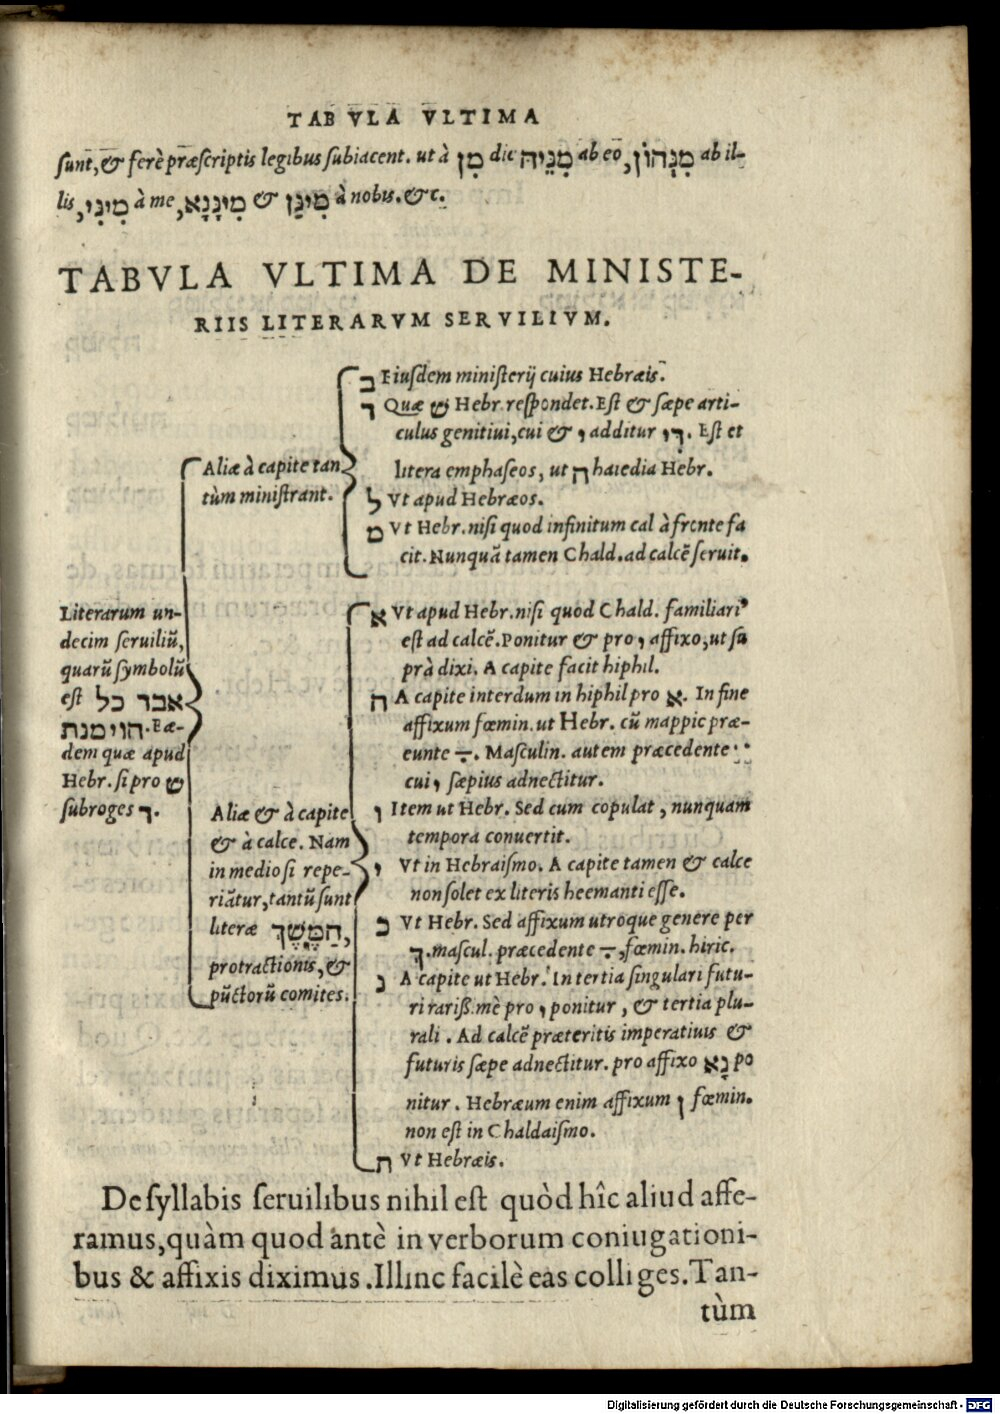 TABVLA VLTIMA
sunt, & ferè præscriptis legibus subiacent. ut à מִן dic מִנֵּיהּ ab eo, מִנְּהוֹן ab il-
lis, מִינִּי à me, מִינָנָא & מִינַּן à nobis. &c.
TABVLA VLTIMA DE MINISTE-
RIIS LITERARVM SERVILIVM.
Literarum un-
decim seruiliũ,
quarũ symbolũ
est אבד כל
הוימנת. Eæ-
dem quæ apud
Hebr. si pro ש
subroges ד.
Aliæ à capite tan
tùm ministrant.
ב Eiusdem ministerij cuius Hebræis.
ד Quæ ש Hebr. respondet. Est & sæpe arti-
culus genitiui, cui & י additur דִי. Est et
litera emphaseos, ut ה haiedia Hebr.
ל Vt apud Hebræos.
מ Vt Hebr. nisi quod infinitum cal à fronte fa
cit. Nunquã tamen Chald. ad calcẽ seruit.
Aliæ & à capite
& à calce. Nam
in medio si repe-
riãtur, tantũ sunt
literæ הַמֶּשֶׁךְ,
protractionis, &
pũctorũ comites.
א Vt apud Hebr. nisi quod Chald. familiari'
est ad calcẽ. Ponitur & pro ו affixo, ut su
prà dixi. A capite facit hiphil.
ה A capite interdum in hiphil pro א. In fine
affixum fœmin. ut Hebr. cũ mappic præ-
eunte ־ָ. Masculin. autem præcedente ־ֵ
cui י sæpius adnectitur.
ו Item ut Hebr. Sed cum copulat, nunquam
tempora conuertit.
י Vt in Hebraismo. A capite tamen & calce
non solet ex literis heemanti esse.
כ Vt Hebr. Sed affixum utroque genere per
ךְ. mascul. præcedente ־ָ, fœmin. hiric.
נ A capite ut Hebr. In tertia singulari futu-
ri rariß. mè pro י ponitur, & tertia plu-
rali. Ad calcẽ præteritis imperatiuis &
futuris sæpe adnectitur. pro affixo נָא po
nitur. Hebræum enim affixum ן fœmin.
non est in Chaldaismo.
ת Vt Hebræis.
De syllabis seruilibus nihil est quòd hîc aliud affe-
ramus, quàm quod antè in verborum coniugationi-
bus & affixis diximus. Illinc facilè eas colliges. Tan-
tùm
Digitalisierung gefördert durch die Deutsche Forschungsgemeinschaft - DFG